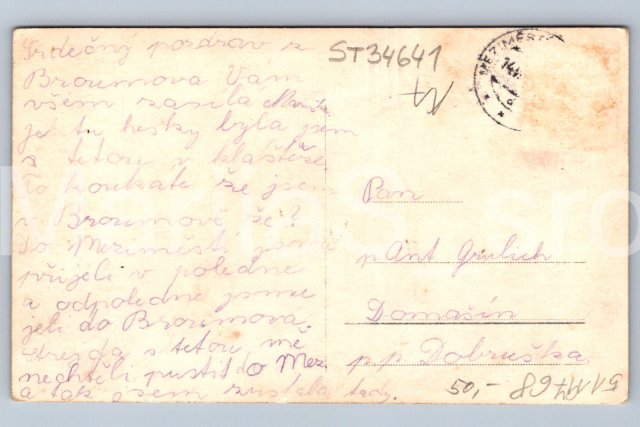 Srdečný pozdrav z
Broumova Vám
všem zasílá
je tu hesky byla jsem
s tetou v klášteře
To koukate že jsem
v Broumově že?
Do Meziměstí jsme
přijeli v poledne
a odpoledne jsme
jeli do Broumova,
strejda s tetou mě
nechtěli pustit do Mez.
a tak jsem zustala tady.
ST34641
MEZIMĚST
Pan
Ant Grulich
Domašín
p.p. Dobruška
50,-
5117768